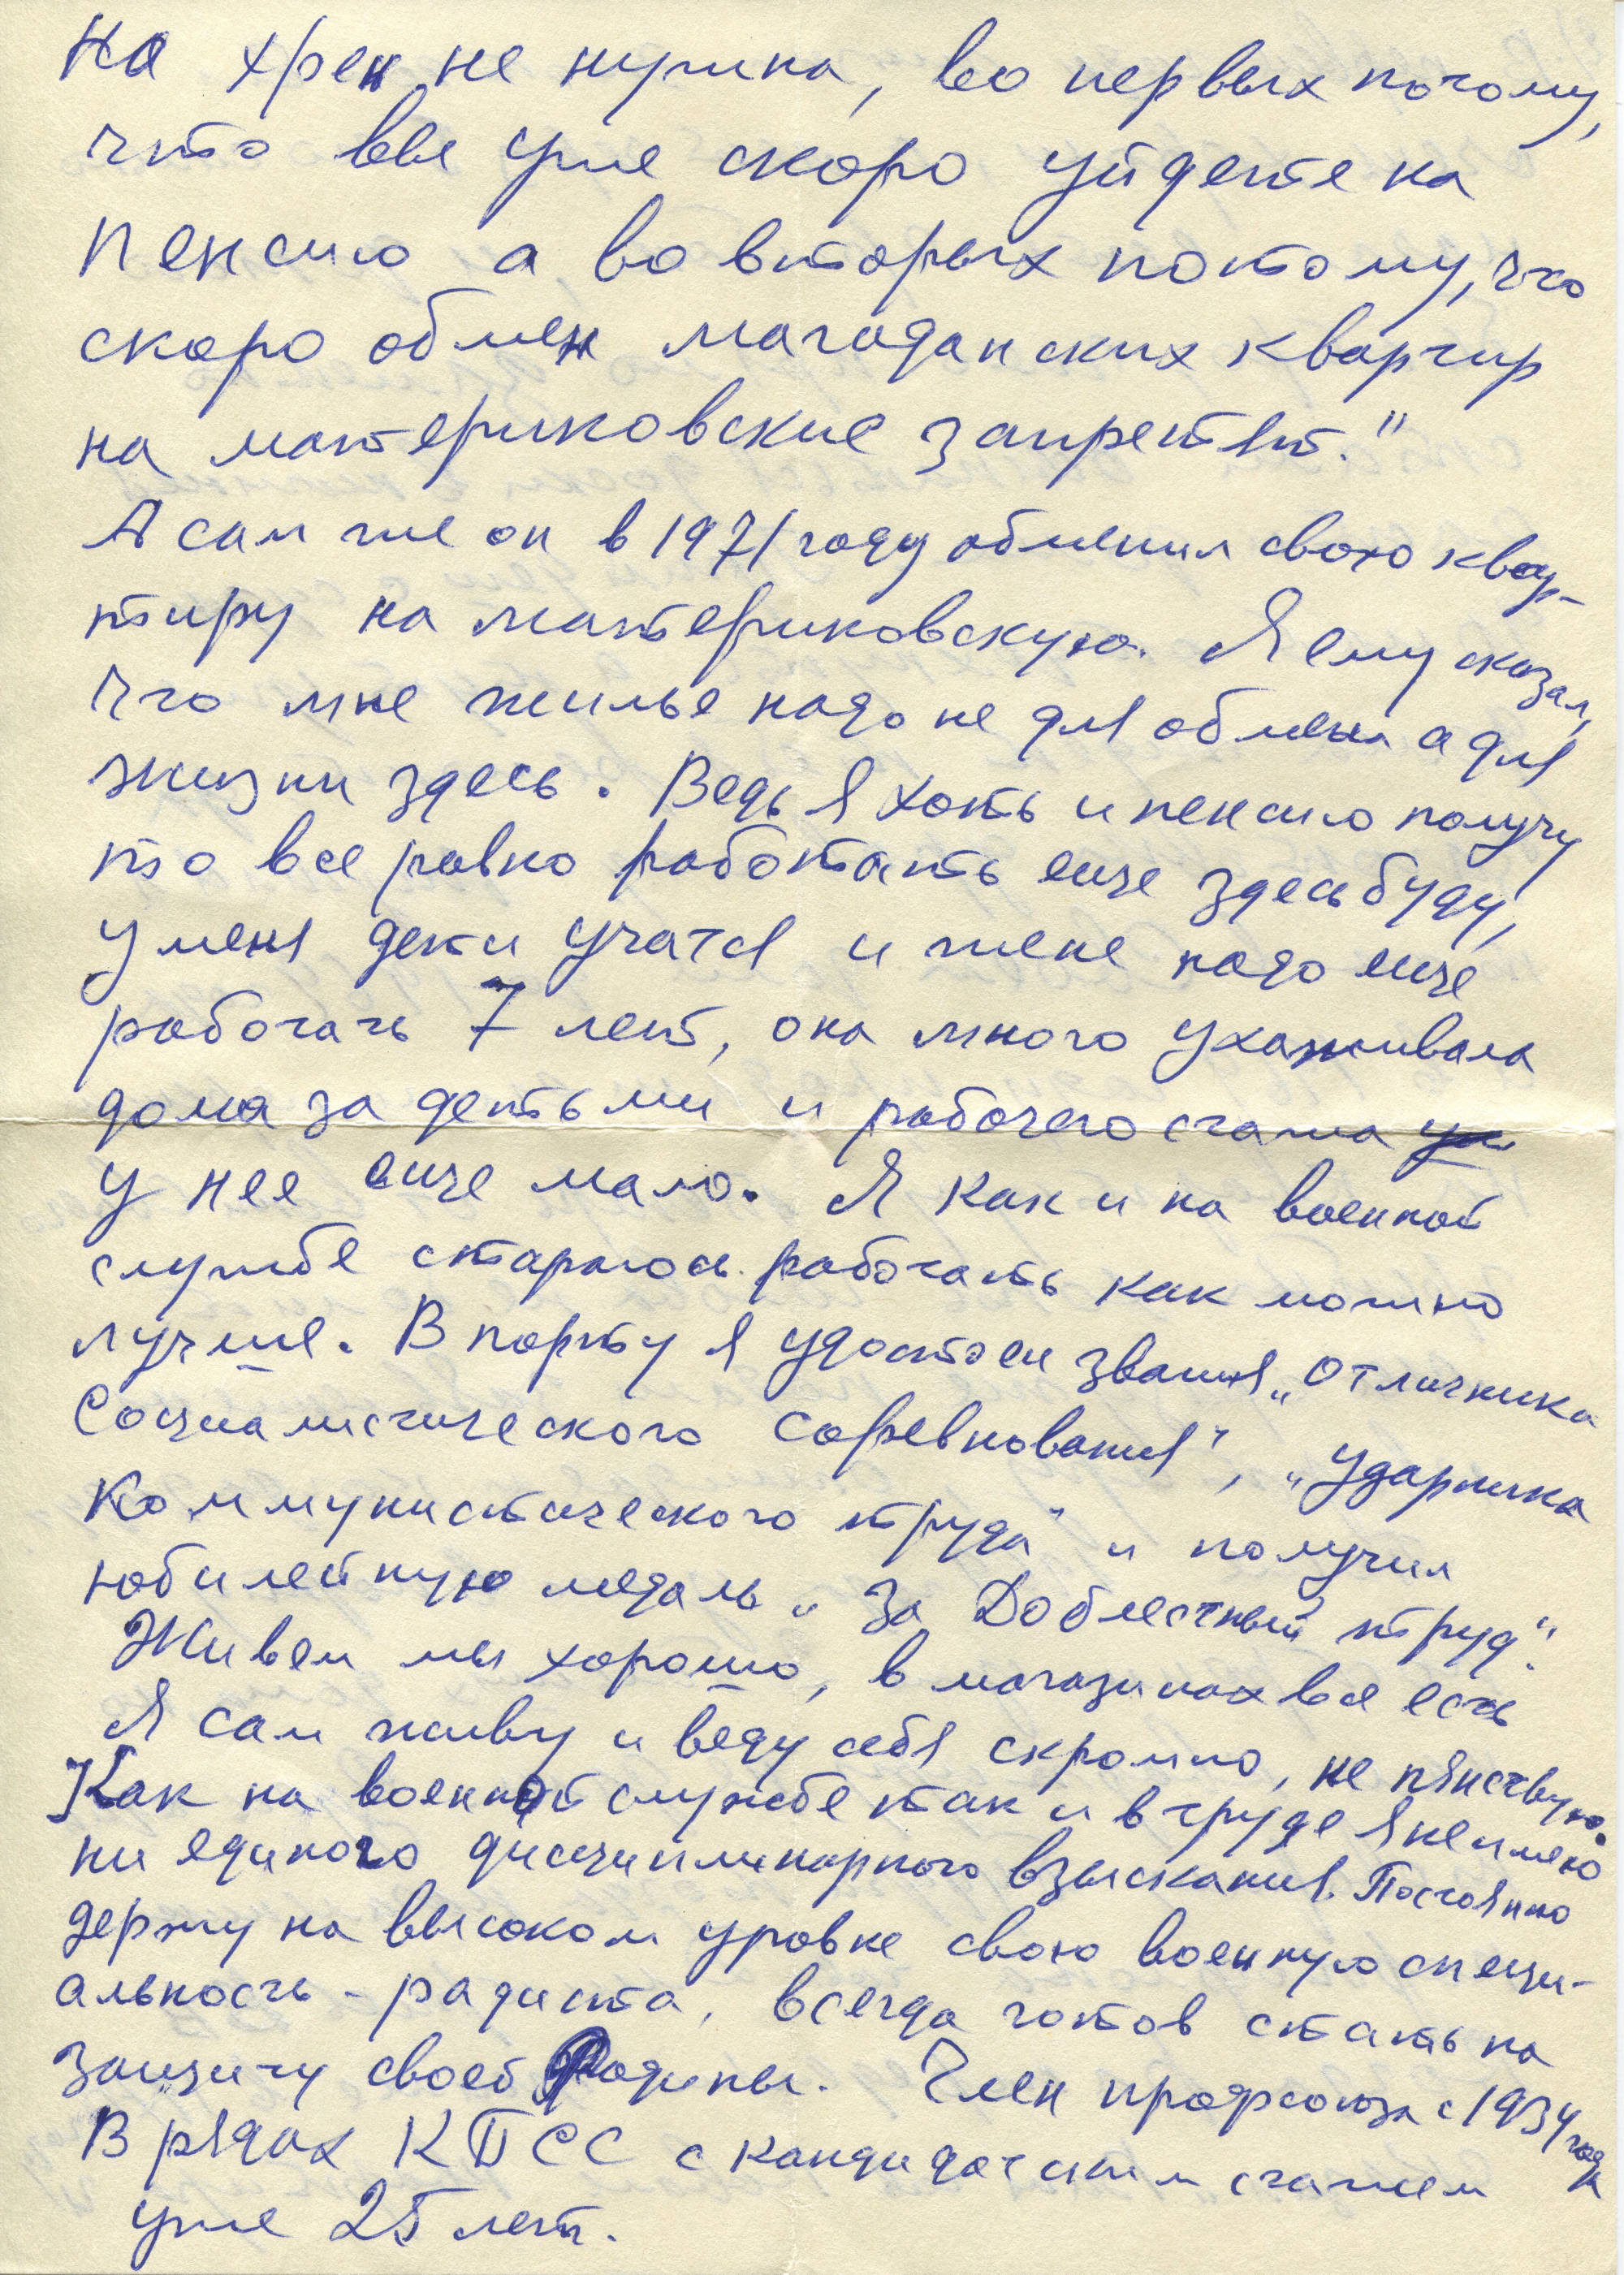 на хрен не нужна, во первых потому,
что вы уже скоро уйдете на
пенсию а во вторых потому, что
скоро обмен магаданских квартир
на материковские запретят."
А сам же он в 1971 году обменил свою квар-
тиру на материковскую. Я ему сказал,
что мне жилье надо не для обмена а для
жизни здесь. Ведь я хоть и пенсию получу
то все равно работать еще здесь буду,
у меня дети учатся и жене надо еще
работать 7 лет, она много ухаживала
дома за детьми и рабочего стажа
у нее еще мало. Я как и на военной
службе стараюсь работать как можно
лучше. В порту я удостоен звания „Отличника
Социалистического соревнования", „Ударника
Коммунистического труда" и получил
юбилейную медаль „За Доблестный труд".
Живем мы хорошо, в магазинах все есть
Я сам живу и веду себя скромно, не пянствую.
Как на военной службе так и в труде я не имею
ни единого дисциплинарного взыскания. Постоянно
держу на высоком уровне свою военную специ-
альность - радиста, всегда готов стать на
защиту своей Родины. Член профсоюза с 1934 года
В рядах КПСС с кандидатским стажем
уже 25 лет.